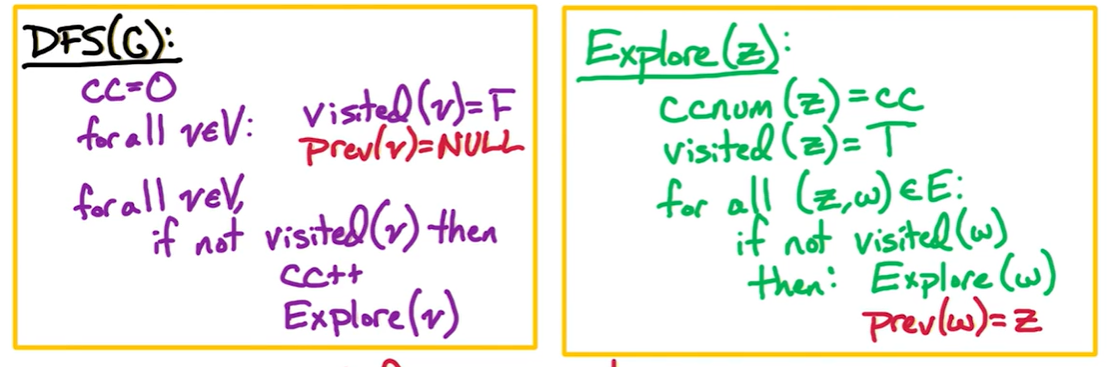 DFS(G):
cc=0
for all v∈V: visited(v)=F
prev(v)=NULL
for all v∈V,
if not visited(v) then
cc++
Explore(v)
Explore(z):
ccnum(z)=cc
visited(z)=T
for all (z,w)∈E:
if not visited(w)
then: Explore(w)
prev(w)=z